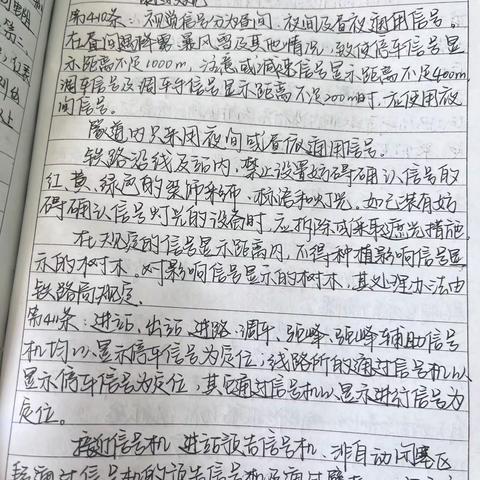 第410条：视觉信号分为昼间、夜间及昼夜通用信号。
在昼间遇降雾、暴风雪及其他情况，致使停车信号显
示距离不足1000m，注意或减速信号显示距离不足400m，
调车信号及调车手信号显示距离不足200m时，应使用夜
间信号。
隧道内只采用夜间或昼夜通用信号。
铁路沿线及站内，禁止设置妨碍确认信号的
红、黄、绿色的装饰彩布、标语和灯光。如已装有妨
碍确认信号灯光的设备时，应拆除或采取遮光措施。
在规定的信号显示距离内，不得种植影响信号显
示的树木。对影响信号显示的树木，其处理办法由
铁路局规定。
第411条：进站、出站、进路、调车、驼峰、驼峰辅助信号
机均以显示停车信号为定位；线路所的通过信号机以
显示停车信号为定位，其它通过信号机以显示进行信号为
定位。
接近信号机、进站预告信号机、非自动闭塞区
段通过信号机的预告信号机及通过